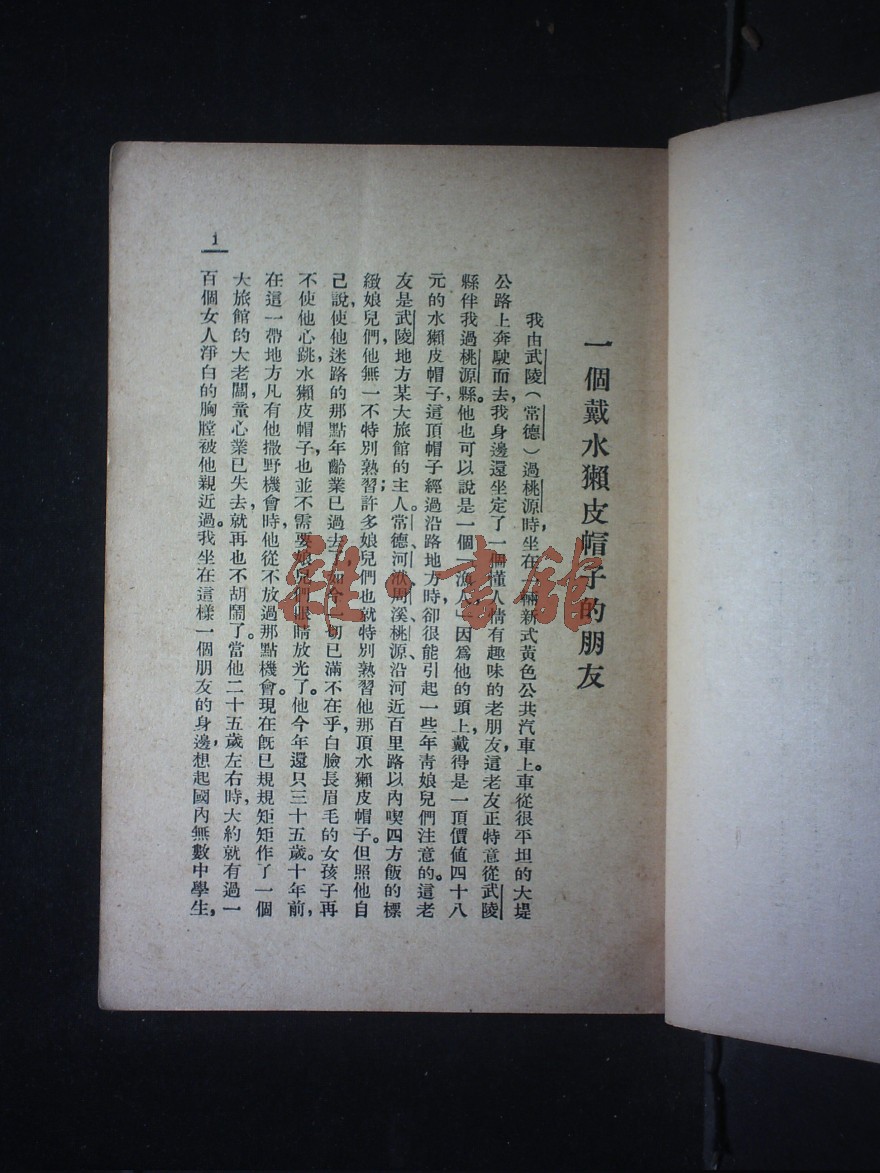 一個戴水獺皮帽子的朋友
我由武陵(常德)過桃源時,坐在一輛新式黃色公共汽車上。車從很平坦的大堤
公路上奔駛而去,我身邊還坐定了一個懂人情有趣味的老朋友,這老友正特意從武陵
縣伴我過桃源縣。他也可以說是一個「漁人」,因爲他的頭上,戴得是一頂價值四十八
元的水獺皮帽子,這頂帽子經過沿路地方時,卻很能引起一些年青娘兒們注意的。這老
友是武陵地方某大旅館的主人。常德、河洑、周溪、桃源、沿河近百里路以內「喫四方飯」的標
緻娘兒們,他無一不特別熟習;許多娘兒們也就特別熟習他那頂水獺皮帽子。但照他自
己說,使他迷路的那點年齡業已過去了,如今一切已滿不在乎,白臉長眉毛的女孩子再
不使他心跳,水獺皮帽子,也並不需要娘兒們眼睛放光了。他今年還只三十五歲。十年前,
在這一帶地方凡有他撒野機會時,他從不放過那點機會。現在旣已規規矩矩作了一個
大旅館的大老闆,童心業已失去,就再也不胡鬧了。當他二十五歲左右時,大約就有過一
百個女人淨白的胸膛被他親近過。我坐在這樣一個朋友的身邊,想起國內無數中學生,
1
雜·書館